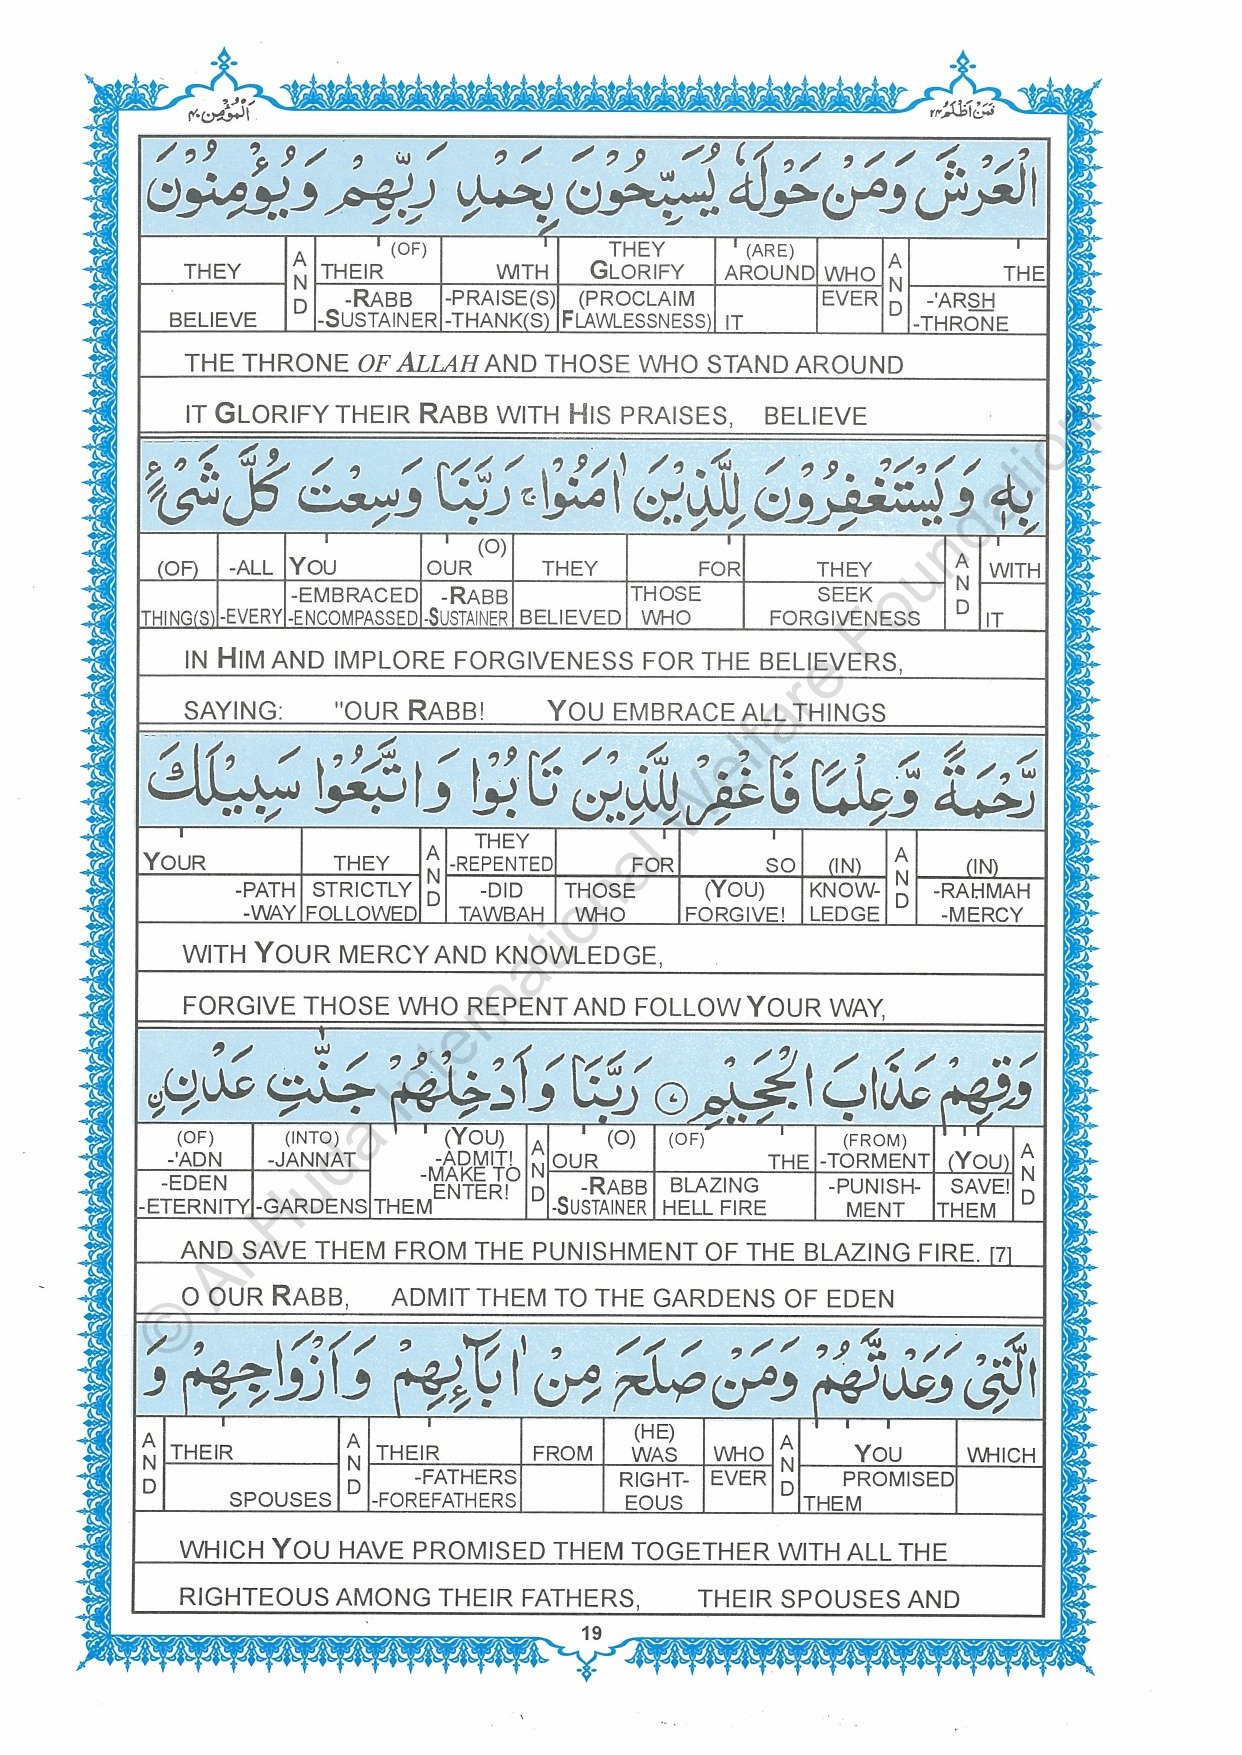 اَلْمُؤْمِن ٤٠
فَمَنْ اَظْلَمُ ٢٤
الْعَرْشَ وَمَنْ حَوْلَهٗ يُسَبِّحُوْنَ بِحَمْدِ رَبِّهِمْ وَيُؤْمِنُوْنَ
THEY AND THEIR (OF) WITH THEY GLORIFY (ARE) AROUND WHO AND THE
BELIEVE -RABB -SUSTAINER -PRAISE(S) -THANK(S) (PROCLAIM FLAWLESSNESS) IT EVER -'ARSH -THRONE
THE THRONE OF ALLAH AND THOSE WHO STAND AROUND
IT GLORIFY THEIR RABB WITH HIS PRAISES, BELIEVE
بِهٖ وَيَسْتَغْفِرُوْنَ لِلَّذِيْنَ اٰمَنُوْا ۚ رَبَّنَا وَسِعْتَ كُلَّ شَىْءٍ
(OF) -ALL YOU OUR (O) THEY FOR THEY AND WITH
THING(S) -EVERY -EMBRACED -ENCOMPASSED -RABB -SUSTAINER BELIEVED THOSE WHO SEEK FORGIVENESS IT
IN HIM AND IMPLORE FORGIVENESS FOR THE BELIEVERS,
SAYING: "OUR RABB! YOU EMBRACE ALL THINGS
رَّحْمَةً وَّعِلْمًا فَاغْفِرْ لِلَّذِيْنَ تَابُوْا وَاتَّبَعُوْا سَبِيْلَكَ
YOUR THEY AND THEY -REPENTED FOR SO (IN) AND (IN)
-PATH -WAY STRICTLY FOLLOWED -DID TAWBAH THOSE WHO (YOU) FORGIVE! KNOW- LEDGE -RAHMAH -MERCY
WITH YOUR MERCY AND KNOWLEDGE,
FORGIVE THOSE WHO REPENT AND FOLLOW YOUR WAY,
وَقِهِمْ عَذَابَ الْجَحِيْمِ ٧ رَبَّنَا وَاَدْخِلْهُمْ جَنّٰتِ عَدْنِ ِۨ
(OF) -'ADN (INTO) -JANNAT (YOU) -ADMIT! -MAKE TO ENTER! AND OUR (O) (OF) THE (FROM) -TORMENT (YOU) AND
-EDEN -ETERNITY -GARDENS THEM -RABB -SUSTAINER BLAZING HELL FIRE -PUNISH- MENT SAVE! THEM
AND SAVE THEM FROM THE PUNISHMENT OF THE BLAZING FIRE. [7]
O OUR RABB, ADMIT THEM TO THE GARDENS OF EDEN
الَّتِىْ وَعَدْتَّهُمْ وَمَنْ صَلَحَ مِنْ اٰبَآئِهِمْ وَاَزْوَاجِهِمْ وَ
AND THEIR AND THEIR FROM (HE) WAS WHO AND YOU WHICH
SPOUSES -FATHERS -FOREFATHERS RIGHT- EOUS EVER PROMISED THEM
WHICH YOU HAVE PROMISED THEM TOGETHER WITH ALL THE
RIGHTEOUS AMONG THEIR FATHERS, THEIR SPOUSES AND
19
© Al-Huda International Welfare Foundation